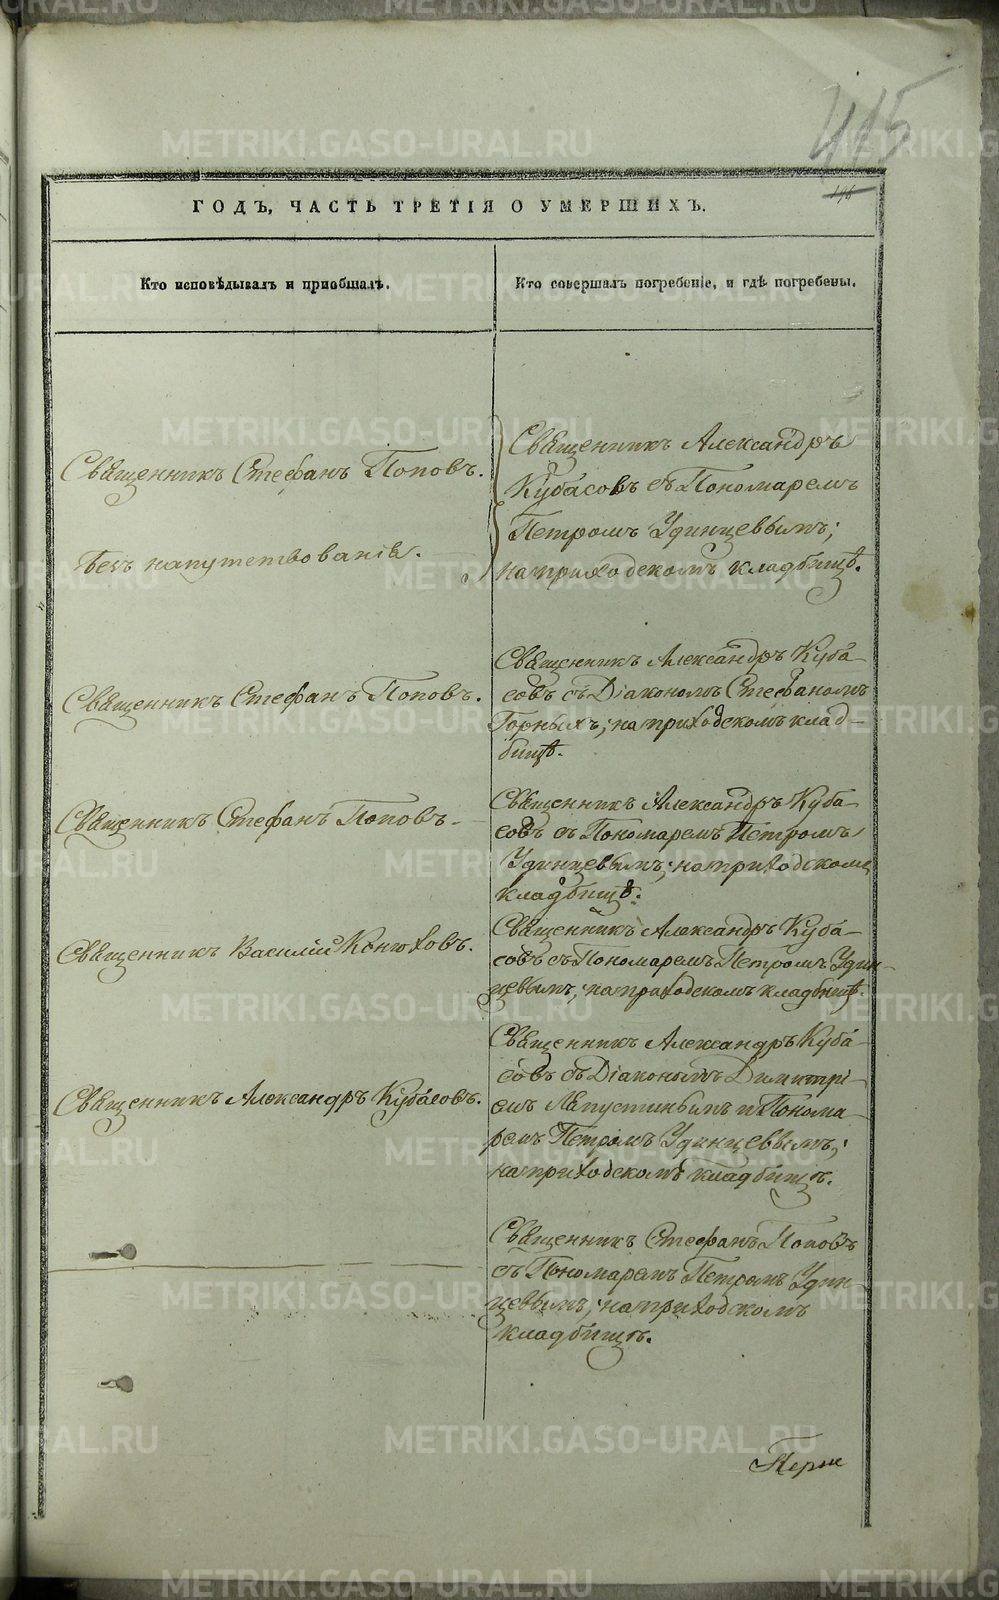 415
146
ГОДЪ, ЧАСТЬ ТРЕТІЯ О УМЕРШИХЪ.
Кто исповѣдывалъ и пріобщалъ.
Кто совершалъ погребеніе, и гдѣ погребены.
Священникъ Стефанъ Поповъ.
Безъ напутствованія.
Священникъ Александръ
Кубасовъ съ Пономаремъ
Петромъ Удинцевымъ;
на приходскомъ кладбищѣ.
Священникъ Стефанъ Поповъ.
Священникъ Александръ Куба-
совъ съ Діакономъ Стефаномъ
Горныхъ; на приходскомъ клад-
бищѣ.
Священникъ Стефанъ Поповъ.
Священникъ Александръ Куба-
совъ съ Пономаремъ Петромъ
Удинцевымъ; на приходскомъ
кладбищѣ.
Священникъ Василій Конюховъ.
Священникъ Александръ Куба-
совъ съ Пономаремъ Петромъ Удин-
цевымъ; на приходскомъ кладбищѣ.
Священникъ Александръ Кубасовъ.
Священникъ Александръ Куба-
совъ съ Діакономъ Димитрі-
емъ Лапустинымъ и Понома-
ремъ Петромъ Удинцевымъ;
на приходскомъ кладбищѣ.
Священникъ Стефанъ Поповъ
съ Пономаремъ Петромъ Удин-
цевымъ; на приходскомъ
кладбищѣ.
METRIKI.GASO-URAL.RU